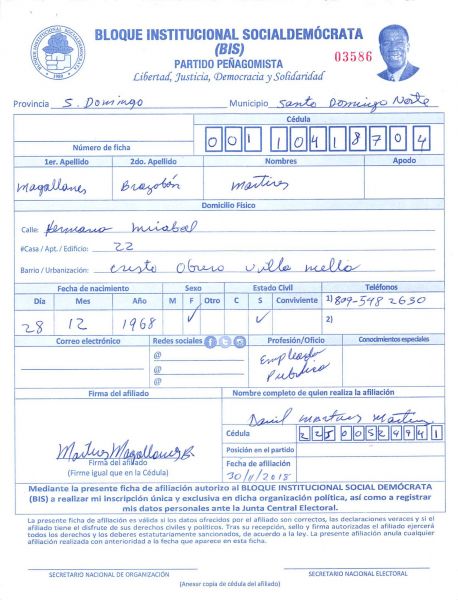 BLOQUE INSTITUCIONAL SOCIALDEMÓCRATA
(BIS)
PARTIDO PEÑAGOMISTA
Libertad, Justicia, Democracia y Solidaridad
03586
Provincia S. Domingo Municipio Santo Domingo Norte
Cédula
Número de ficha 001 1041870 4
1er. Apellido 2do. Apellido Nombres Apodo
Magallanes Brazobán Martires
Domicilio Físico
Calle: Hermana Mirabal
#Casa / Apt. / Edificio: 22
Barrio / Urbanización: Cristo Obrero Villa Mella
Fecha de nacimiento Sexo Estado Civil Teléfonos
Día Mes Año M F Otro C S Conviviente 1) 809-548 2630
28 12 1968 ✓ ✓ 2)
Correo electrónico Redes sociales Profesión/Oficio Conocimientos especiales
@ Empleada
@ Publica
@
Firma del afiliado Nombre completo de quien realiza la afiliación
Martires Magallanes B.
Firma del afiliado
(Firme igual que en la Cédula)
Daniel Martires Martinez
Cédula 225 0052494 1
Posición en el partido
Fecha de afiliación
30/11/2018
Mediante la presente ficha de afiliación autorizo al BLOQUE INSTITUCIONAL SOCIAL DEMÓCRATA
(BIS) a realizar mi inscripción única y exclusiva en dicha organización política, así como a registrar
mis datos personales ante la Junta Central Electoral.
La presente ficha de afiliación es válida si los datos ofrecidos por el afiliado son correctos, las declaraciones veraces y si el
afiliado tiene el disfrute de sus derechos civiles y políticos. Tras su recepción, sello y firma autorizados el afiliado ejercerá
todos los derechos y los deberes estatutariamente sancionados, de acuerdo a la ley. La presente afiliación anula cualquier
afiliación realizada con anterioridad a la fecha que aparece en esta ficha.
SECRETARIO NACIONAL DE ORGANIZACIÓN SECRETARIO NACIONAL ELECTORAL
(Anexar copia de cédula del afiliado)